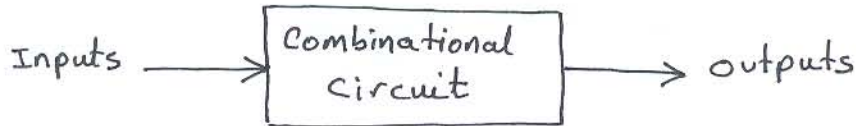 Inputs
Combinational
Circuit
outputs